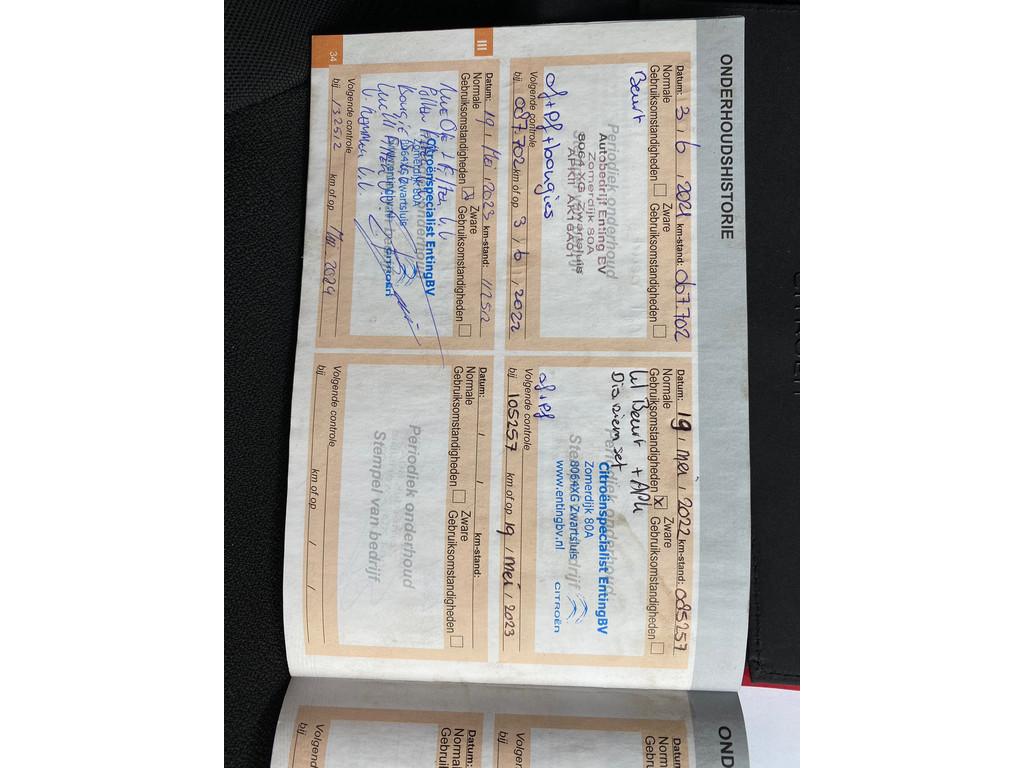 ONDERHOUDSHISTORIE
Datum: 3 / 6 / 2021 km-stand: 067702
Normale Gebruiksomstandigheden Zware Gebruiksomstandigheden
Beurt
Periodiek onderhoud
Autobedrijf Enting BV
Zomerdijk 80A
8064 XG Zwartsluis
of + pf + bougies
Volgende controle
bij 087.702 km of op 3 / 6 / 2022
Datum: 19 / mei / 2022 km-stand: 085257
Normale Gebruiksomstandigheden x Zware Gebruiksomstandigheden
Beurt + APK
Periodiek onderhoud
Citroënspecialist EntingBV
Zomerdijk 80A
8064XG Zwartsluis
www.entingbv.nl
CITROËN
of + pf
Volgende controle
bij 105257 km of op 19 / mei / 2023
III
Datum: 19 / Mei / 2023 km-stand: 112512
Normale Gebruiksomstandigheden Zware Gebruiksomstandigheden
Citroënspecialist EntingBV
Zomerdijk 80A
8064XG Zwartsluis
www.entingbv.nl
CITROËN
Volgende controle
bij 132512 km of op Mei 2024
Datum: / / km-stand:
Normale Gebruiksomstandigheden Zware Gebruiksomstandigheden
Periodiek onderhoud
Stempel van bedrijf
Volgende controle
bij km of op / /
34
OND
Datum:
Norm
Volgen
bij
Datum:
Normale
Gebruik
Volgend
bij